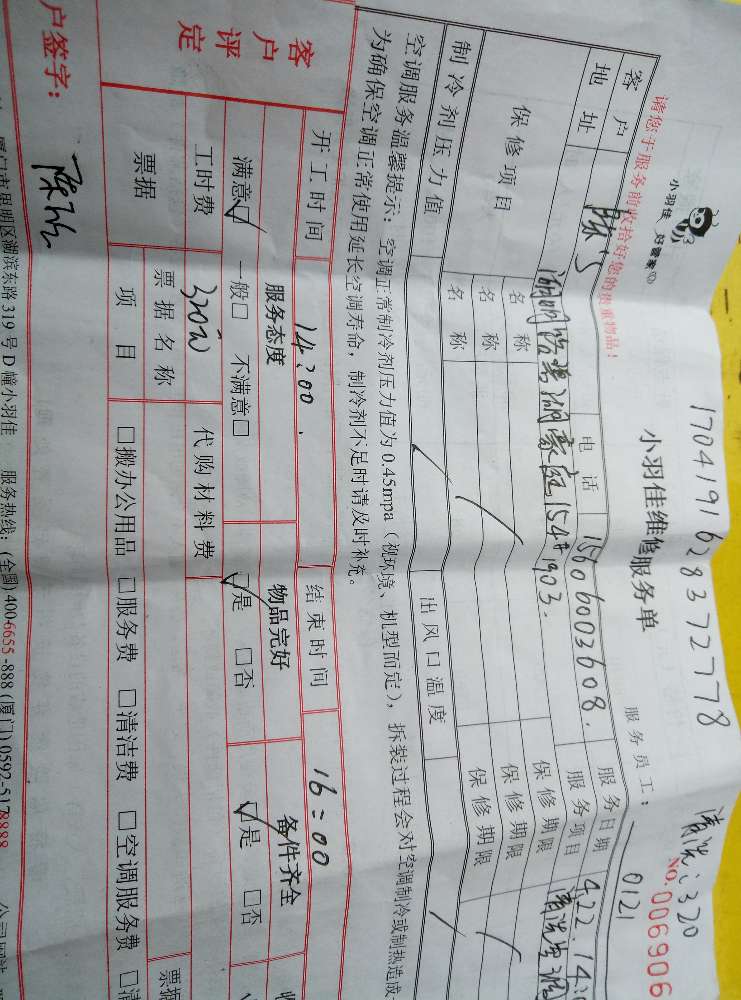 1704191628372778
清洗:320
小羽佳 好管家
小羽佳维修服务单
NO.006906
请您于服务前收拾好您的贵重物品!
服务员工: 0121
客户 陈 电话 15606003608. 服务日期 4.22.14:
地址 湖154#1903. 服务项目 清洗空调
保修项目 名称 保修期限
名称 保修期限
名称 保修期限
制冷剂压力值 出风口温度
空调服务温馨提示:空调正常制冷剂压力值为0.45mpa(视环境、机型而定),拆装过程会对空调制冷或制热造成
为确保空调正常使用延长空调寿命,制冷剂不足时请及时补充。
开工时间 14:00. 结束时间 16:00
客户评定 服务态度 物品完好 备件齐全
满意☑ 一般□ 不满意□ ☑是 □否 ☑是 □否
工时费 320元 代购材料费
票据 票据名称 票据
项目 □搬办公用品 □服务费 □清洁费 □空调服务费 □清
户签字: 陈
厦门市思明区湖滨东路319号D幢小羽佳 服务热线:(全国)400-6655-888(厦门)0592-5178888